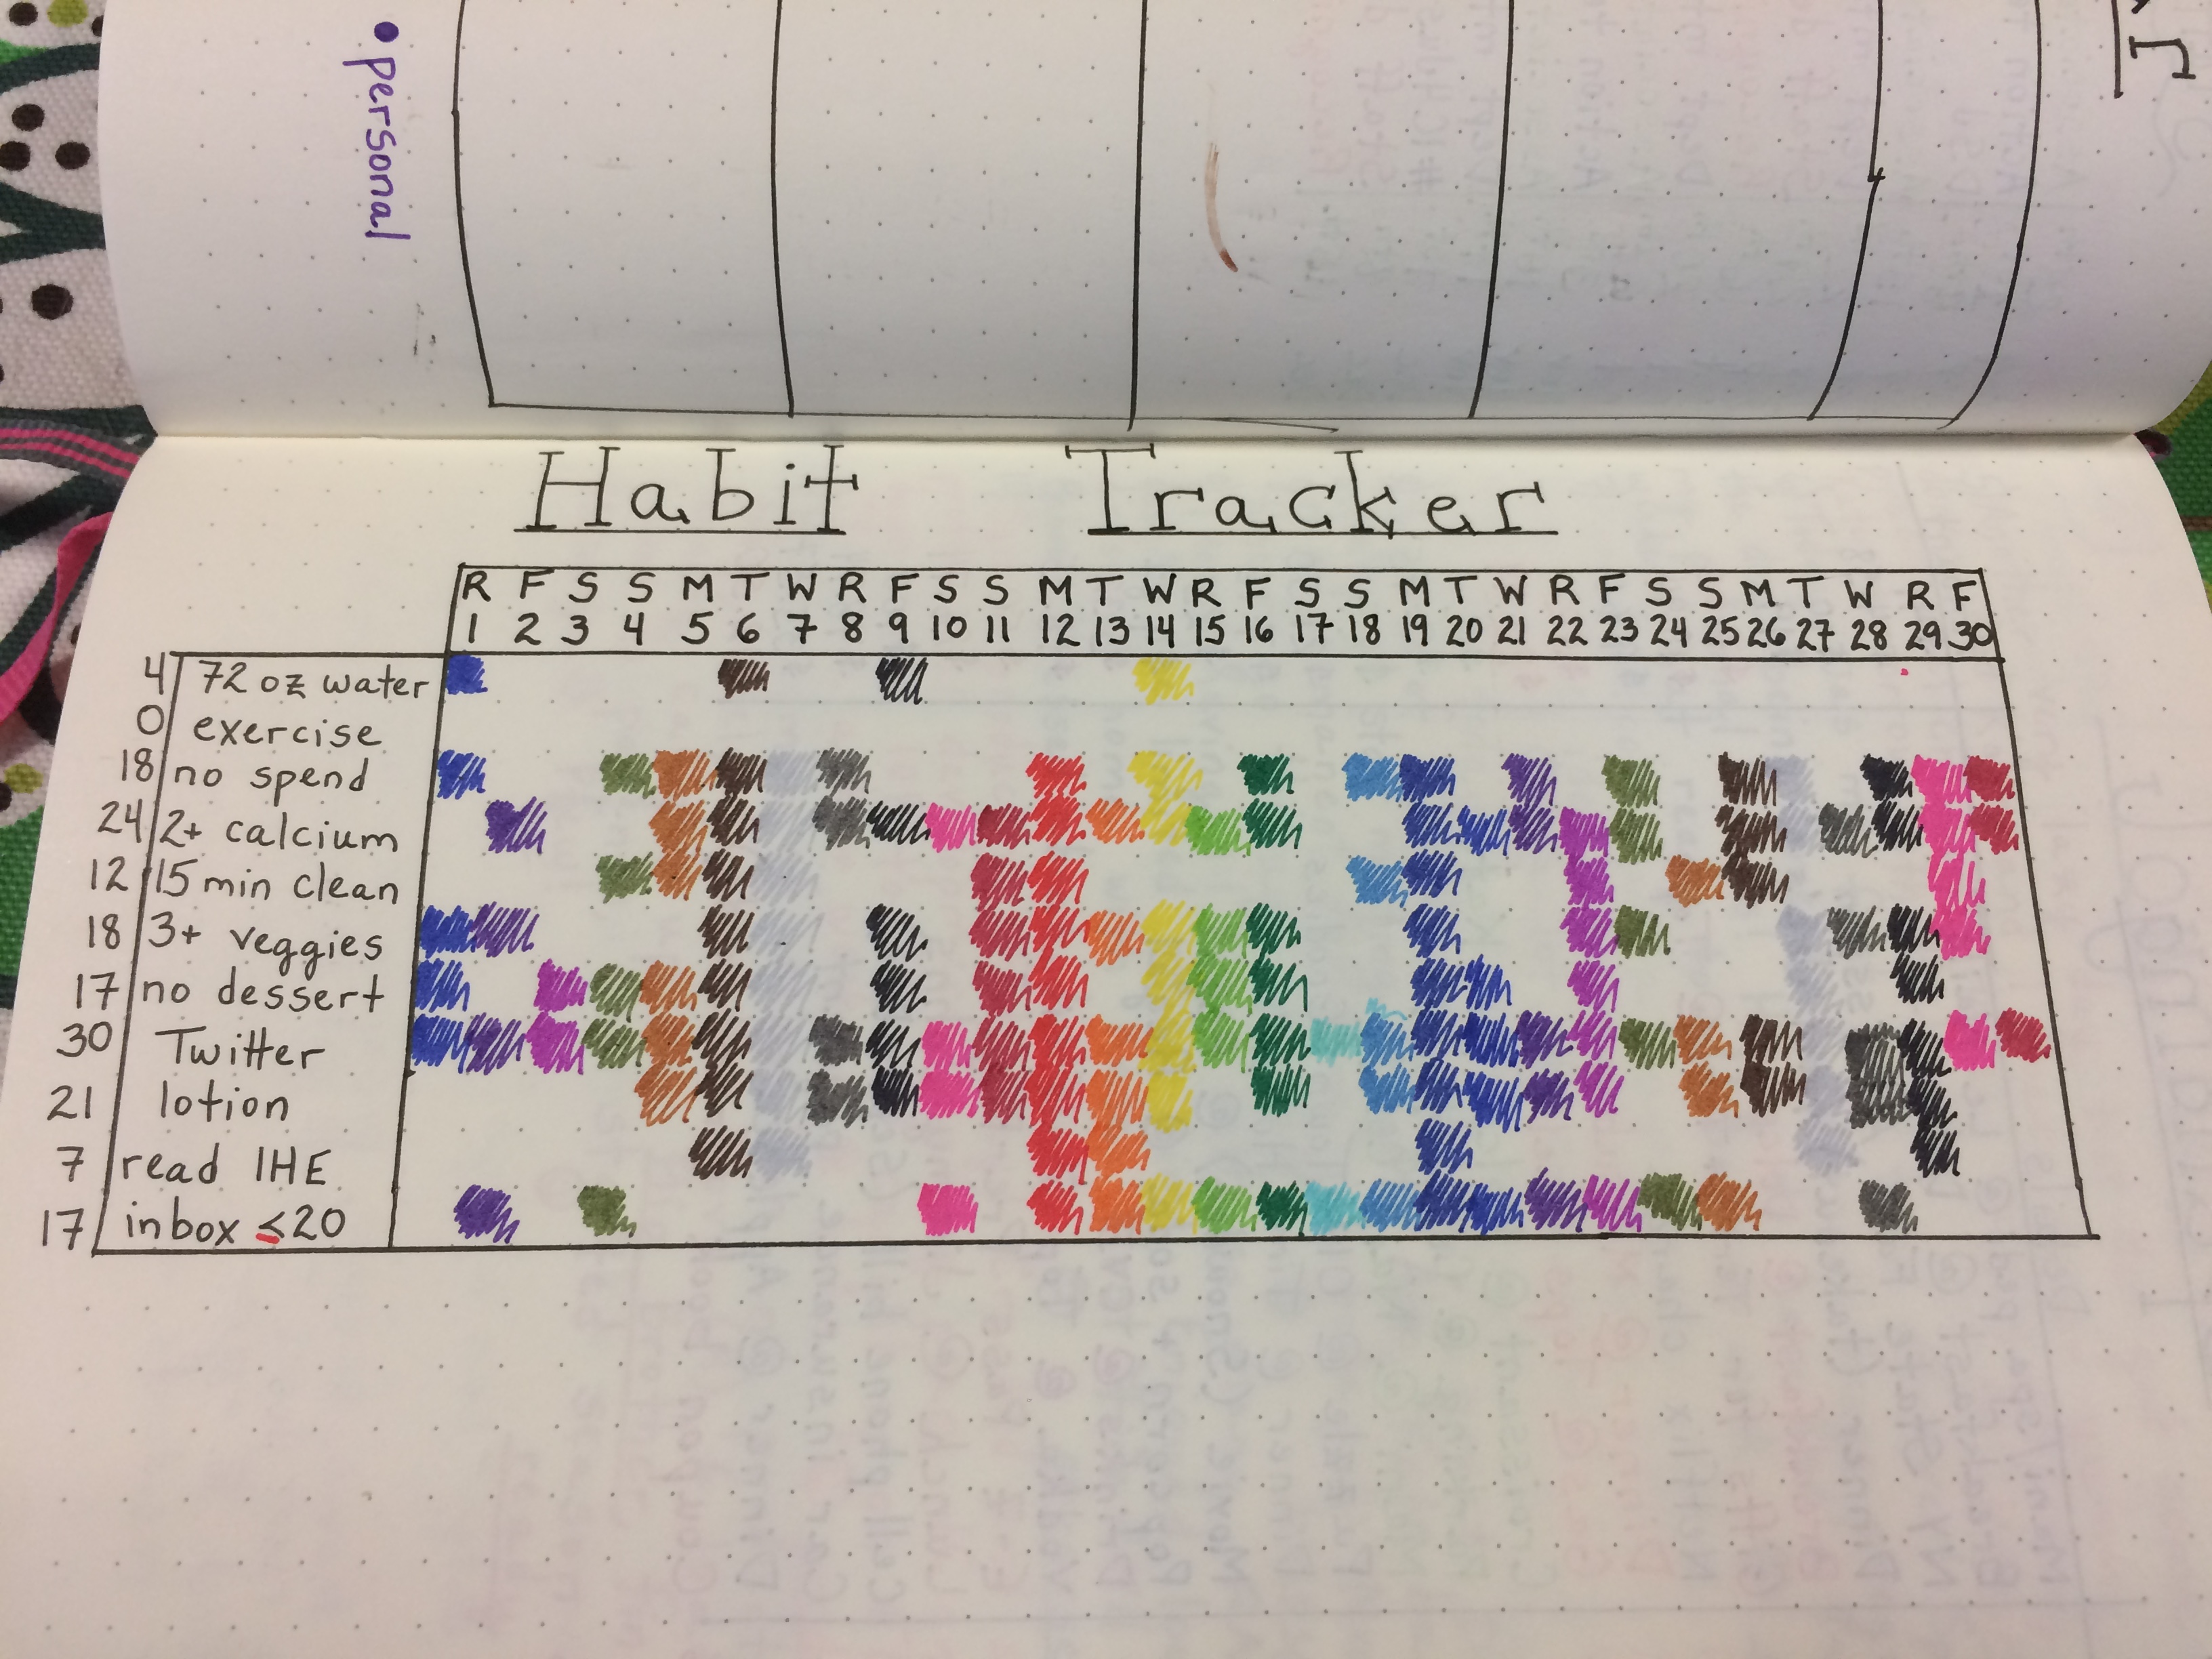 • personal
Habit Tracker
R F S S M T W R F S S M T W R F S S M T W R F S S M T W R F
1 2 3 4 5 6 7 8 9 10 11 12 13 14 15 16 17 18 19 20 21 22 23 24 25 26 27 28 29 30
4 72 oz water
0 exercise
18 no spend
24 2+ calcium
12 15 min clean
18 3+ veggies
17 no dessert
30 Twitter
21 lotion
7 read IHE
17 inbox ≤20